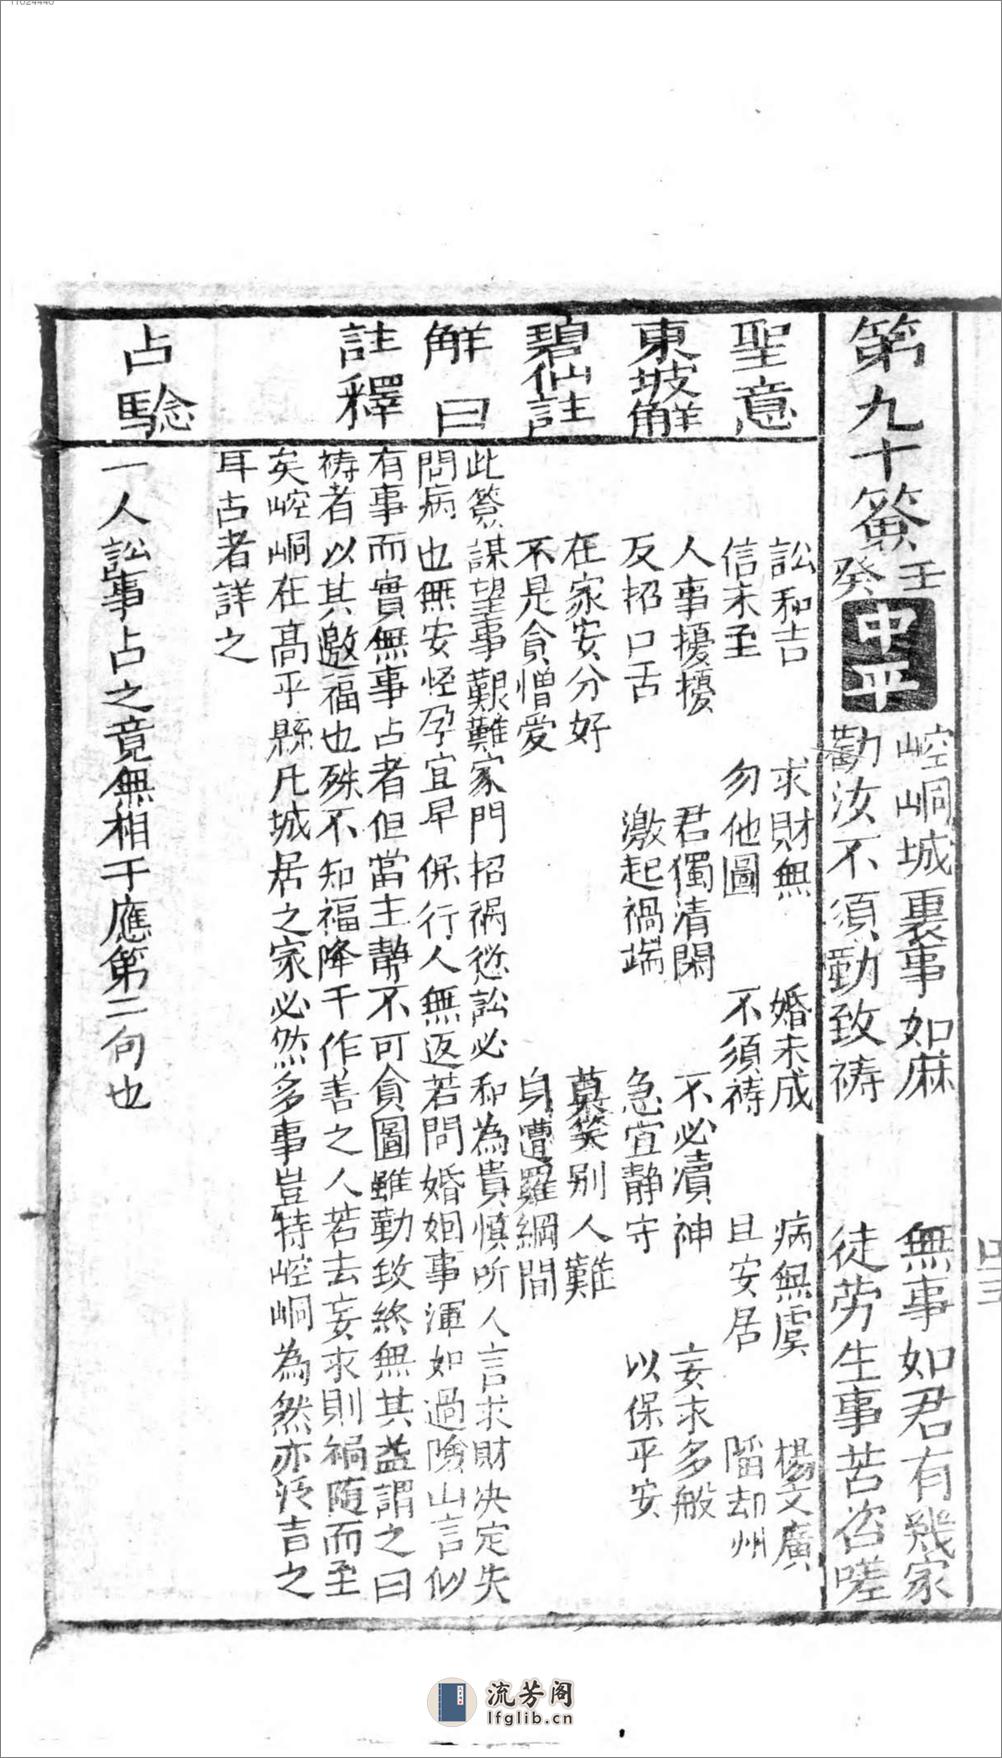 第九十籤 壬癸 中平
崆峒城裏事如麻 無事如君有幾家
勸汝不須勤致祷 徒劳生事苦咨嗟
聖意
訟和吉 求財無 婚未成 病無虞 楊文廣
信未至 勿他圖 不須祷 且安居 陷却州
東坡解
人事擾擾 君獨清閑 不必瀆神 妄求多般
反招口舌 激起禍端 急宜静守 以保平安
碧仙註
在家安分好 莫笑别人難
不是貪憎爱 身遭羅綱間
解曰
此籤謀望事艱難家門招祸愆訟必和為貴慎听人言求财决定失
問病也無安怪孕宜早保行人無返若問婚姻事渾如過險山言似
註釋
有事而實無事占者但當主静不可貪圖雖勤致終無其益謂之曰
祷者以其邀福也殊不知福降于作善之人若去妄求則祸随而至
矣崆峒在高平縣凡城居之家必然多事豈特崆峒為然亦泛言之
耳占者詳之
占驗
一人訟事占之竟無相干應第二句也
四三
流芳阁
lfglib.cn
11024440